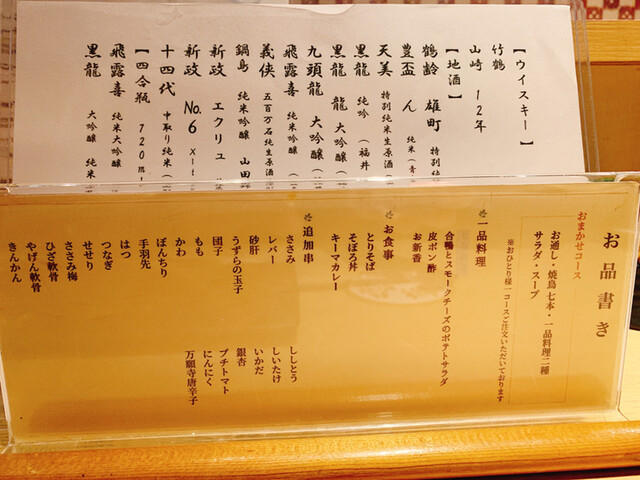 【ウイスキー】
竹鶴
山崎 12年
【地酒】
鶴齢 雄町 特別純
豊盃 ん 純米(青
天美 特別純米生原酒(
黒龍 純吟 (福井
黒龍 龍 大吟醸(
九頭龍 大吟醸(
飛露喜 純米吟醸(
義侠 五百万石純生原酒
鍋島 純米吟醸 山田
新政 エクリュ
新政 No.6
十四代 中取り純米(
【四合瓶 720ml
飛露喜 純米大吟醸
黒龍 大吟醸 純米
お品書き
おまかせコース
お通し・焼鳥七本・一品料理二種
サラダ・スープ
※おひとり様一コースご注文いただいております
一品料理
合鴨とスモークチーズのポテトサラダ
皮ポン酢
お新香
お食事
とりそば
そぼろ丼
キーマカレー
追加串
ささみ
レバー
砂肝
うずらの玉子
団子
もも
かわ
ぼんちり
手羽先
はつ
つなぎ
せせり
ささみ梅
ひざ軟骨
やげん軟骨
きんかん
ししとう
しいたけ
いかだ
銀杏
プチトマト
にんにく
万願寺唐辛子